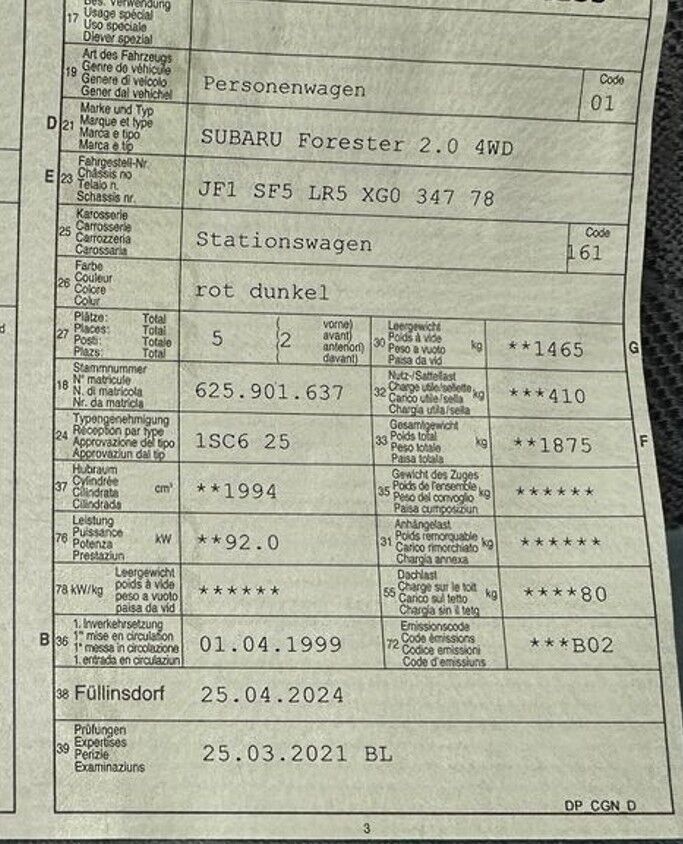 Bes. Verwendung
17 Usage spécial
Uso speciale
Diever spezial
Art des Fahrzeugs
19 Genre de véhicule
Genere di veicolo
Gener dal vehichel
Personenwagen
Code
01
D 21 Marke und Typ
Marque et type
Marca e tipo
Marca e tip
SUBARU Forester 2.0 4WD
E 23 Fahrgestell-Nr.
Châssis no
Telaio n.
Schassis nr.
JF1 SF5 LR5 XG0 347 78
25 Karosserie
Carrosserie
Carrozzeria
Carossaria
Stationswagen
Code
161
26 Farbe
Couleur
Colore
Colur
rot dunkel
27 Plätze: Total
Places: Total
Posti: Totale
Plazs: Total
5 (2 vorne)
avant)
anteriori)
davant)
30 Leergewicht
Poids à vide
Peso a vuoto kg
Paisa da vid
**1465 G
18 Stammnummer
N° matricule
N. di matricola
Nr. da matricla
625.901.637
32 Nutz-/Sattellast
Charge utile/sellette kg
Carico utile/sella
Chargia utila/sella
***410
24 Typengenehmigung
Réception par type
Approvazione del tipo
Approvaziun dal tip
1SC6 25
33 Gesamtgewicht
Poids total kg
Peso totale
Paisa totala
**1875 F
37 Hubraum
Cylindrée cm³
Cilindrata
Cilindrada
**1994
35 Gewicht des Zuges
Poids de l'ensemble
Peso del convoglio kg
Paisa cumposiziun
******
76 Leistung
Puissance kW
Potenza
Prestaziun
**92.0
31 Anhängelast
Poids remorquable
Carico rimorchiato kg
Chargia annexa
******
78 kW/kg Leergewicht
poids à vide
peso a vuoto
paisa da vid
******
55 Dachlast
Charge sur le toit kg
Carico sul tetto
Chargia sin il tetg
****80
B 36 1. Inverkehrsetzung
1re mise en circulation
1a messa in circolazione
1. entrada en circulaziun
01.04.1999
72 Emissionscode
Code émissions
Codice emissioni
Code d'emissiuns
***B02
38 Füllinsdorf 25.04.2024
39 Prüfungen
Expertises
Perizie
Examinaziuns
25.03.2021 BL
DP_CGN_D
3